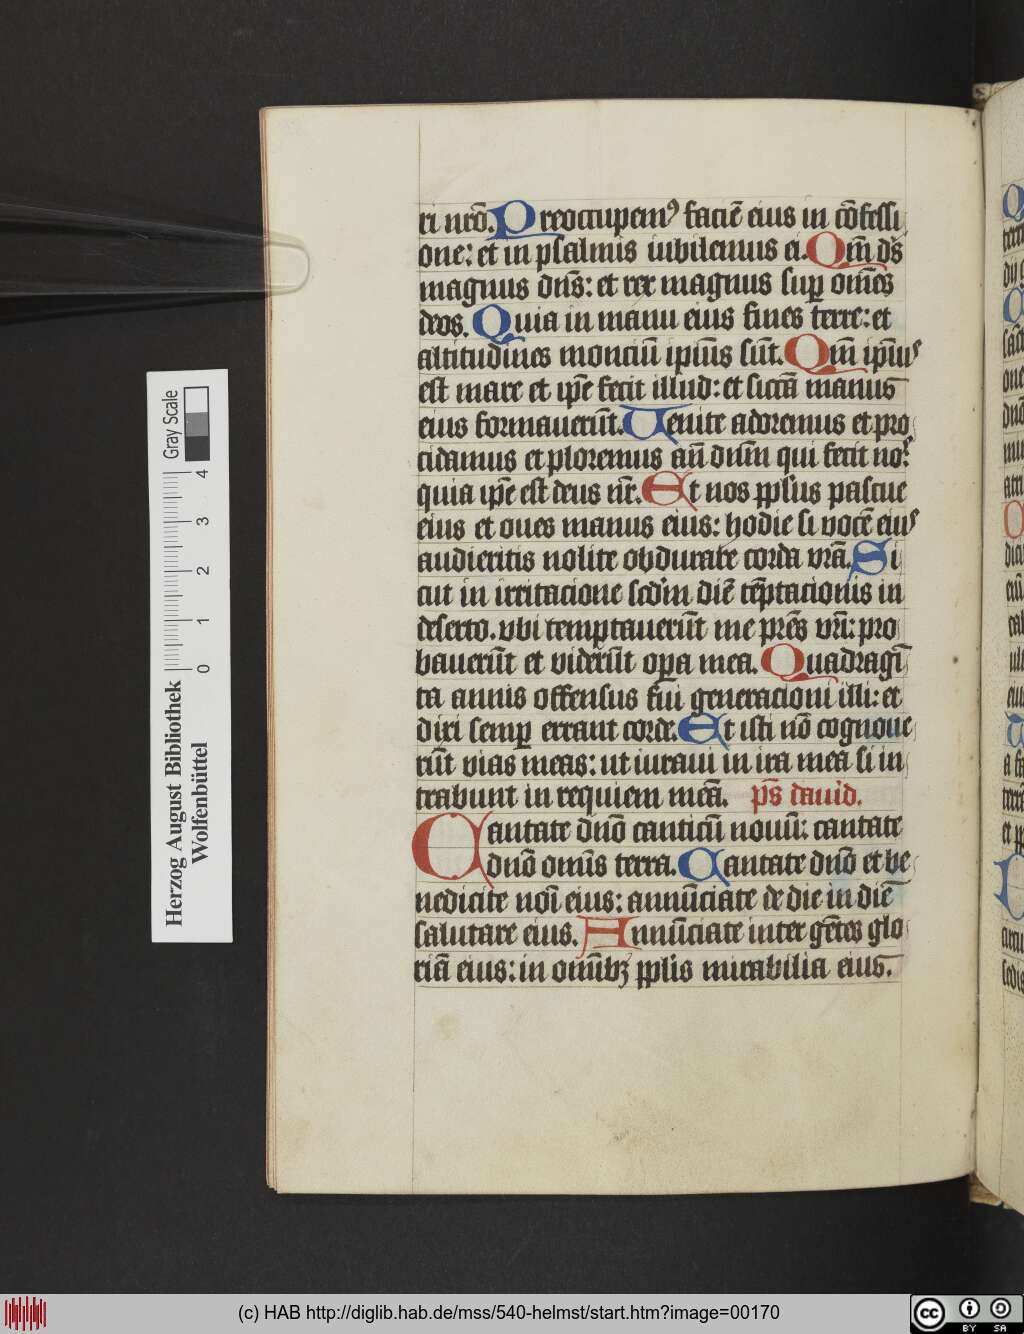 ri nr̄o. Preocupemꝰ faciē eius in cōfessi
one: et in psalmis iubilemus ei. Qm̄ ds̄
magnus dn̄s: et rex magnus suꝑ omēs
deos. Quia in manu eius fines terre: et
altitudines monciū ipiūs sūt. Qm̄ ipīuˢ
est mare et ip̄e fecit illud: et siccā manus
eius formauerūt. Venite adoremus et pro
cidamus et ploremus añ dn̄m qui fecit noˢ:
quia ip̄e est deus nr̄. Et nos pp̄lus pascue
eius et oues manus eius: hodie si vocē eiuˢ
audieritis nolite obdurare corda vrā. Si
cut in irritacione scdm̄ diē tēptacionis in
deserto. vbi temptauerūt me prēs vr̄i: pro
bauerūt et viderūt oꝑa mea. Quadragī
ta annis offensus fūi generacioni illi: et
dixi semꝑ errant corde. Et isti nō cognoue
rūt vias meas: ut iuraui in ira mea si in
trabunt in requiem meā. p̄s dauid.
Cantate dn̄o canticū nouū: cantate
dn̄o omīs terra. Cantate dn̄o et be
nedicite noī eius: annūciate de die in diē
salutare eius. Annūciate inter gētes glo
riā eius: in omībꝫ pp̄lis mirabilia eius.
Herzog August Bibliothek
Wolfenbüttel
0 1 2 3 4
Gray Scale
(c) HAB http://diglib.hab.de/mss/540-helmst/start.htm?image=00170
cc BY SA